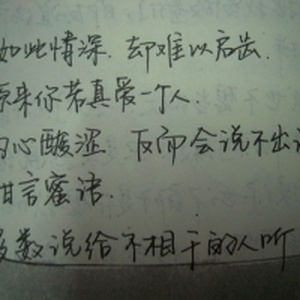 如此情深 却难以启齿.
原来你若真爱一个人.
内心酸涩 反而会说不出
甜言蜜语.
多数说给不相干的人听